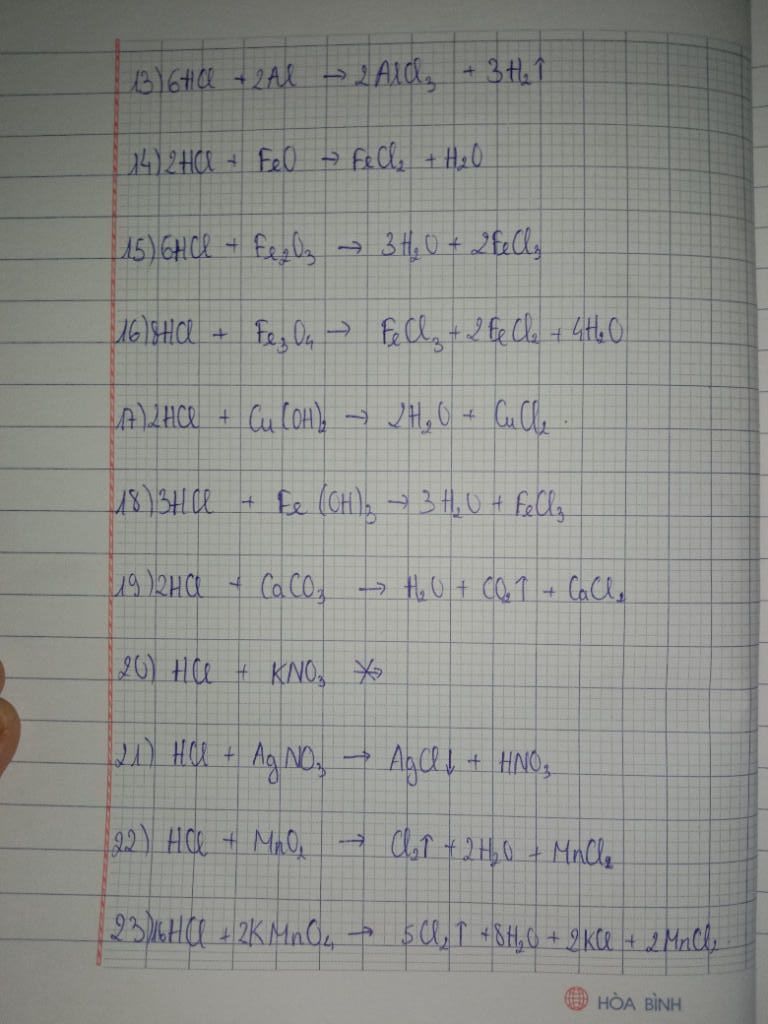 13) 6HCl + 2Al → 2AlCl₃ + 3H₂↑
14) 2HCl + FeO → FeCl₂ + H₂O
15) 6HCl + Fe₂O₃ → 3H₂O + 2FeCl₃
16) 8HCl + Fe₃O₄ → FeCl₃ + 2FeCl₂ + 4H₂O
17) 2HCl + Cu(OH)₂ → 2H₂O + CuCl₂.
18) 3HCl + Fe(OH)₃ → 3H₂O + FeCl₃
19) 2HCl + CaCO₃ → H₂O + CO₂↑ + CaCl₂
20) HCl + KNO₃ ↛
21) HCl + AgNO₃ → AgCl↓ + HNO₃
22) HCl + MnO₂ → Cl₂↑ + 2H₂O + MnCl₂
23) 16HCl + 2KMnO₄ → 5Cl₂↑ + 8H₂O + 2KCl + 2MnCl₂.
HÒA BÌNH